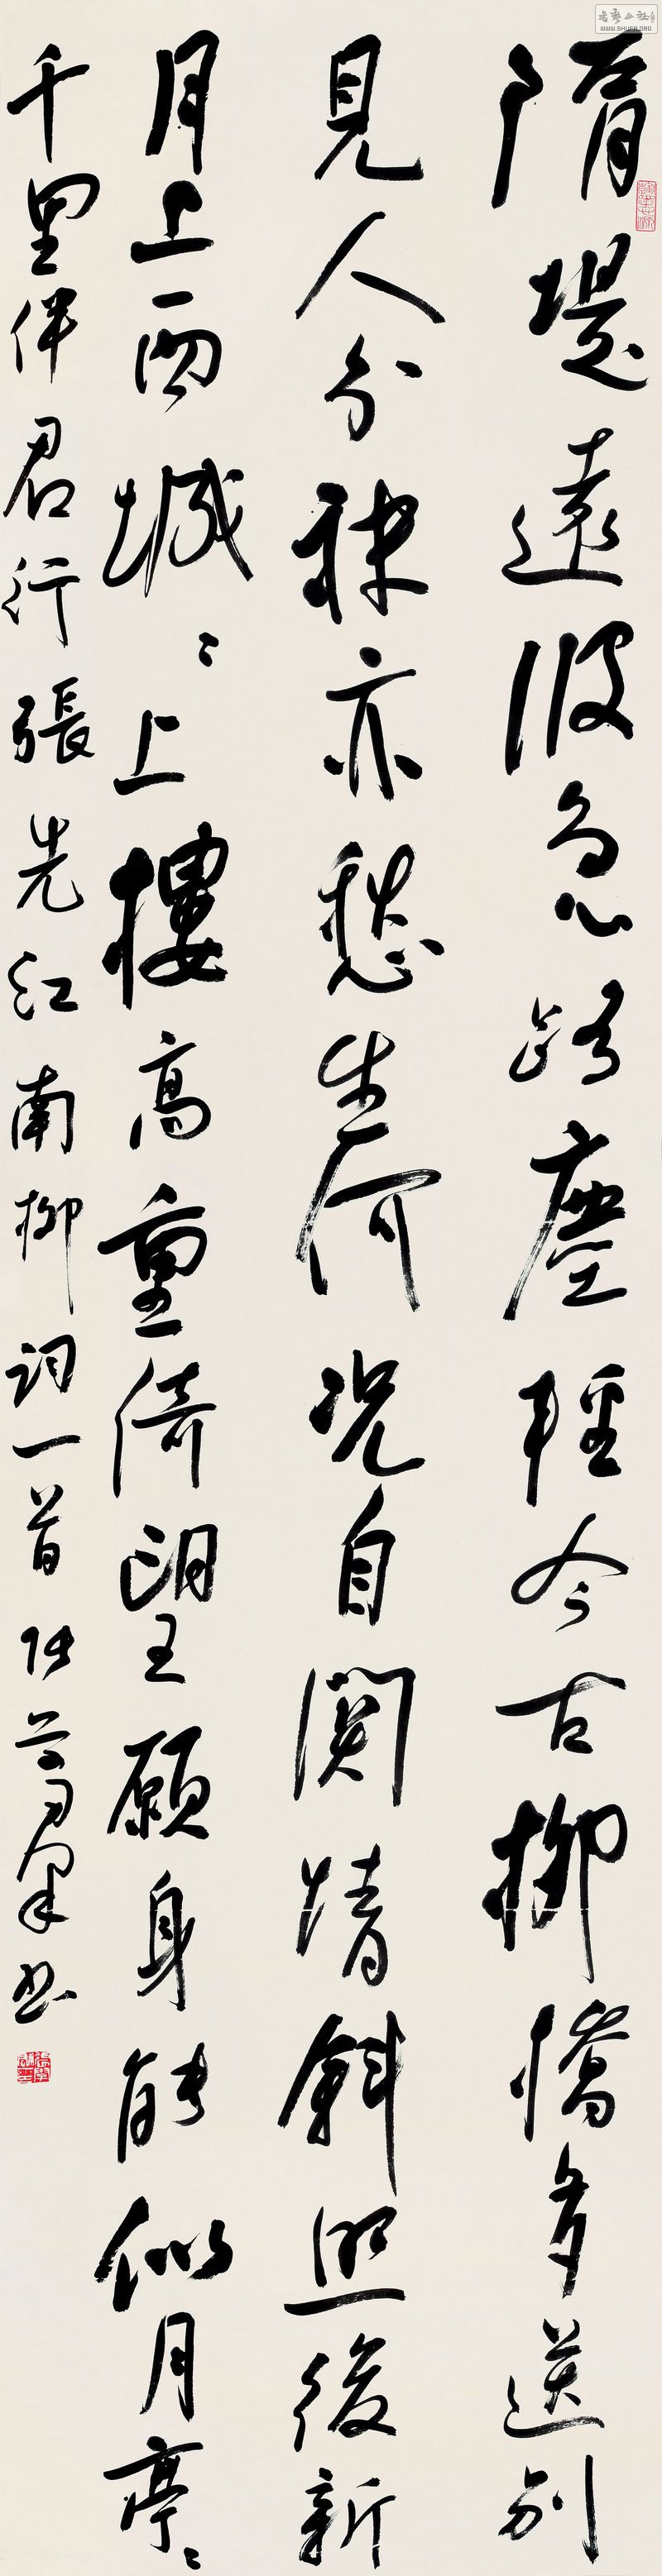 隋堤遠波急路塵輕今古柳橋多送別
見人分袂亦愁生何况自關情斜照後新
月上西城〻上樓高重倚望願身能似月亭〻
千里伴君行張先江南柳詞一首 書
WWW.SHUFA.ORG